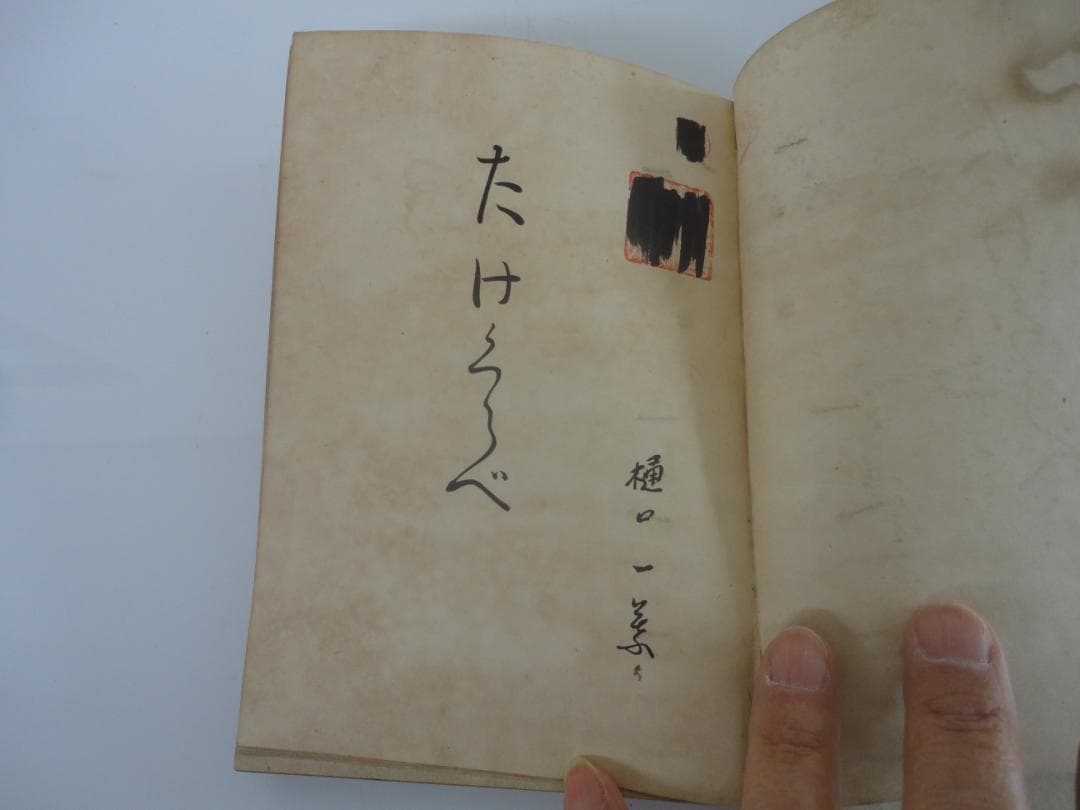 樋口一葉
たけくらべ